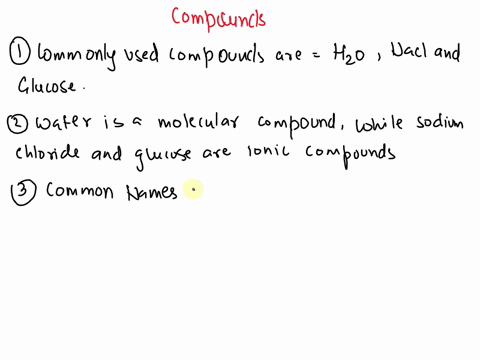 Compounds
① Commonly used compounds are = H₂O, Nacl and
Glucose.
② Water is a molecular compound, while sodium
chloride and glucose are ionic compounds
③ Common Names